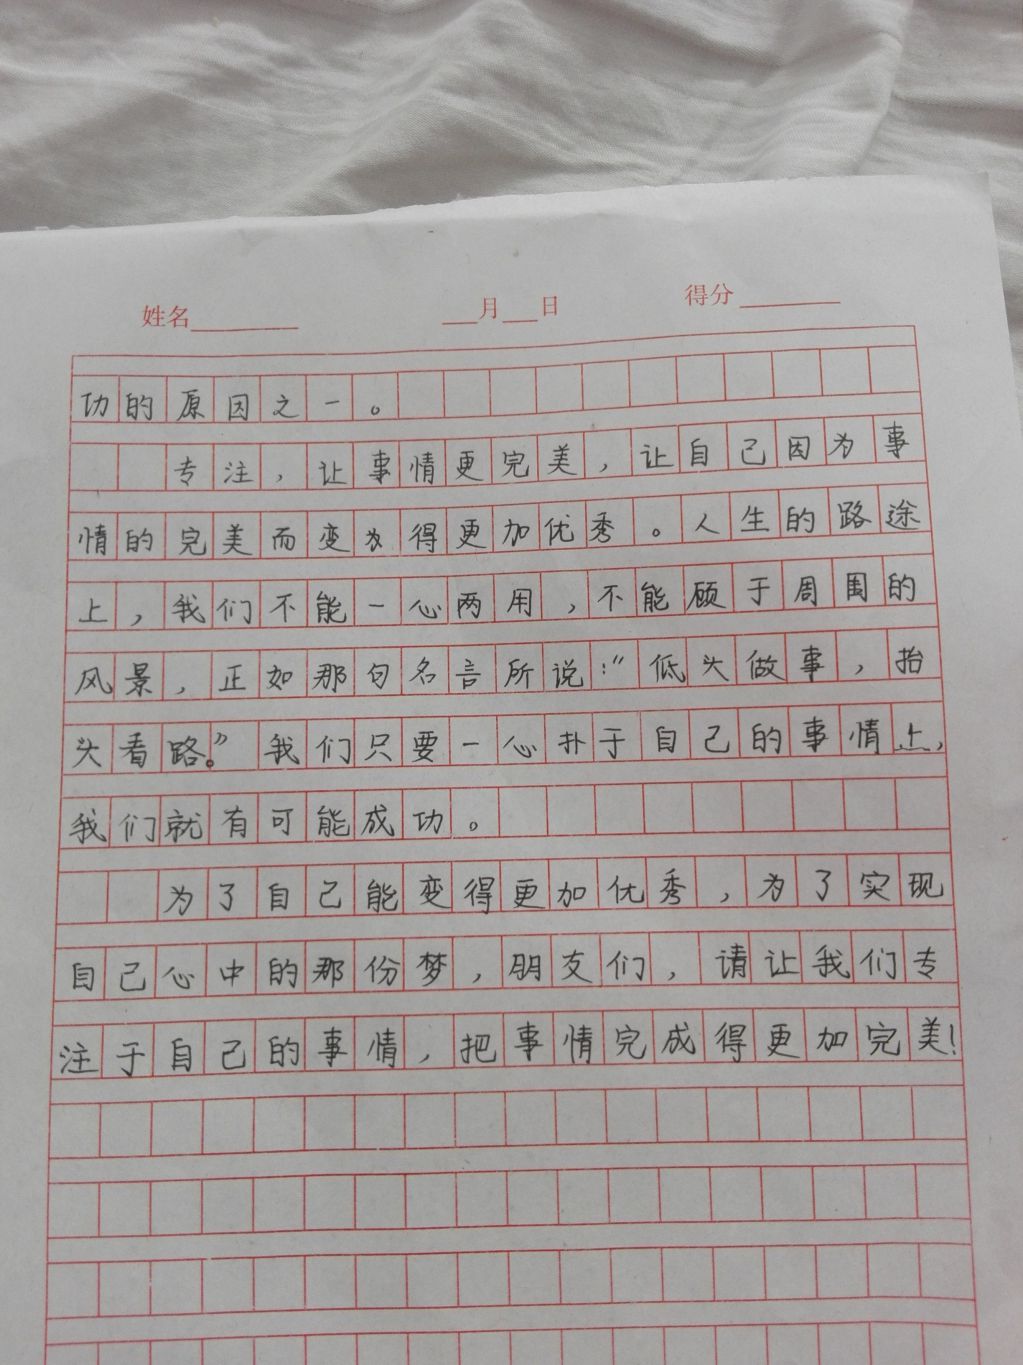 姓名 月 日 得分
功的原因之一。
专注，让事情更完美，让自己因为事
情的完美而变为得更加优秀。人生的路途
上，我们不能一心两用，不能顾于周围的
风景，正如那句名言所说：“低头做事，抬
头看路。”我们只要一心扑于自己的事情上，
我们就有可能成功。
为了自己能变得更加优秀，为了实现
自己心中的那份梦，朋友们，请让我们专
注于自己的事情，把事情完成得更加完美！